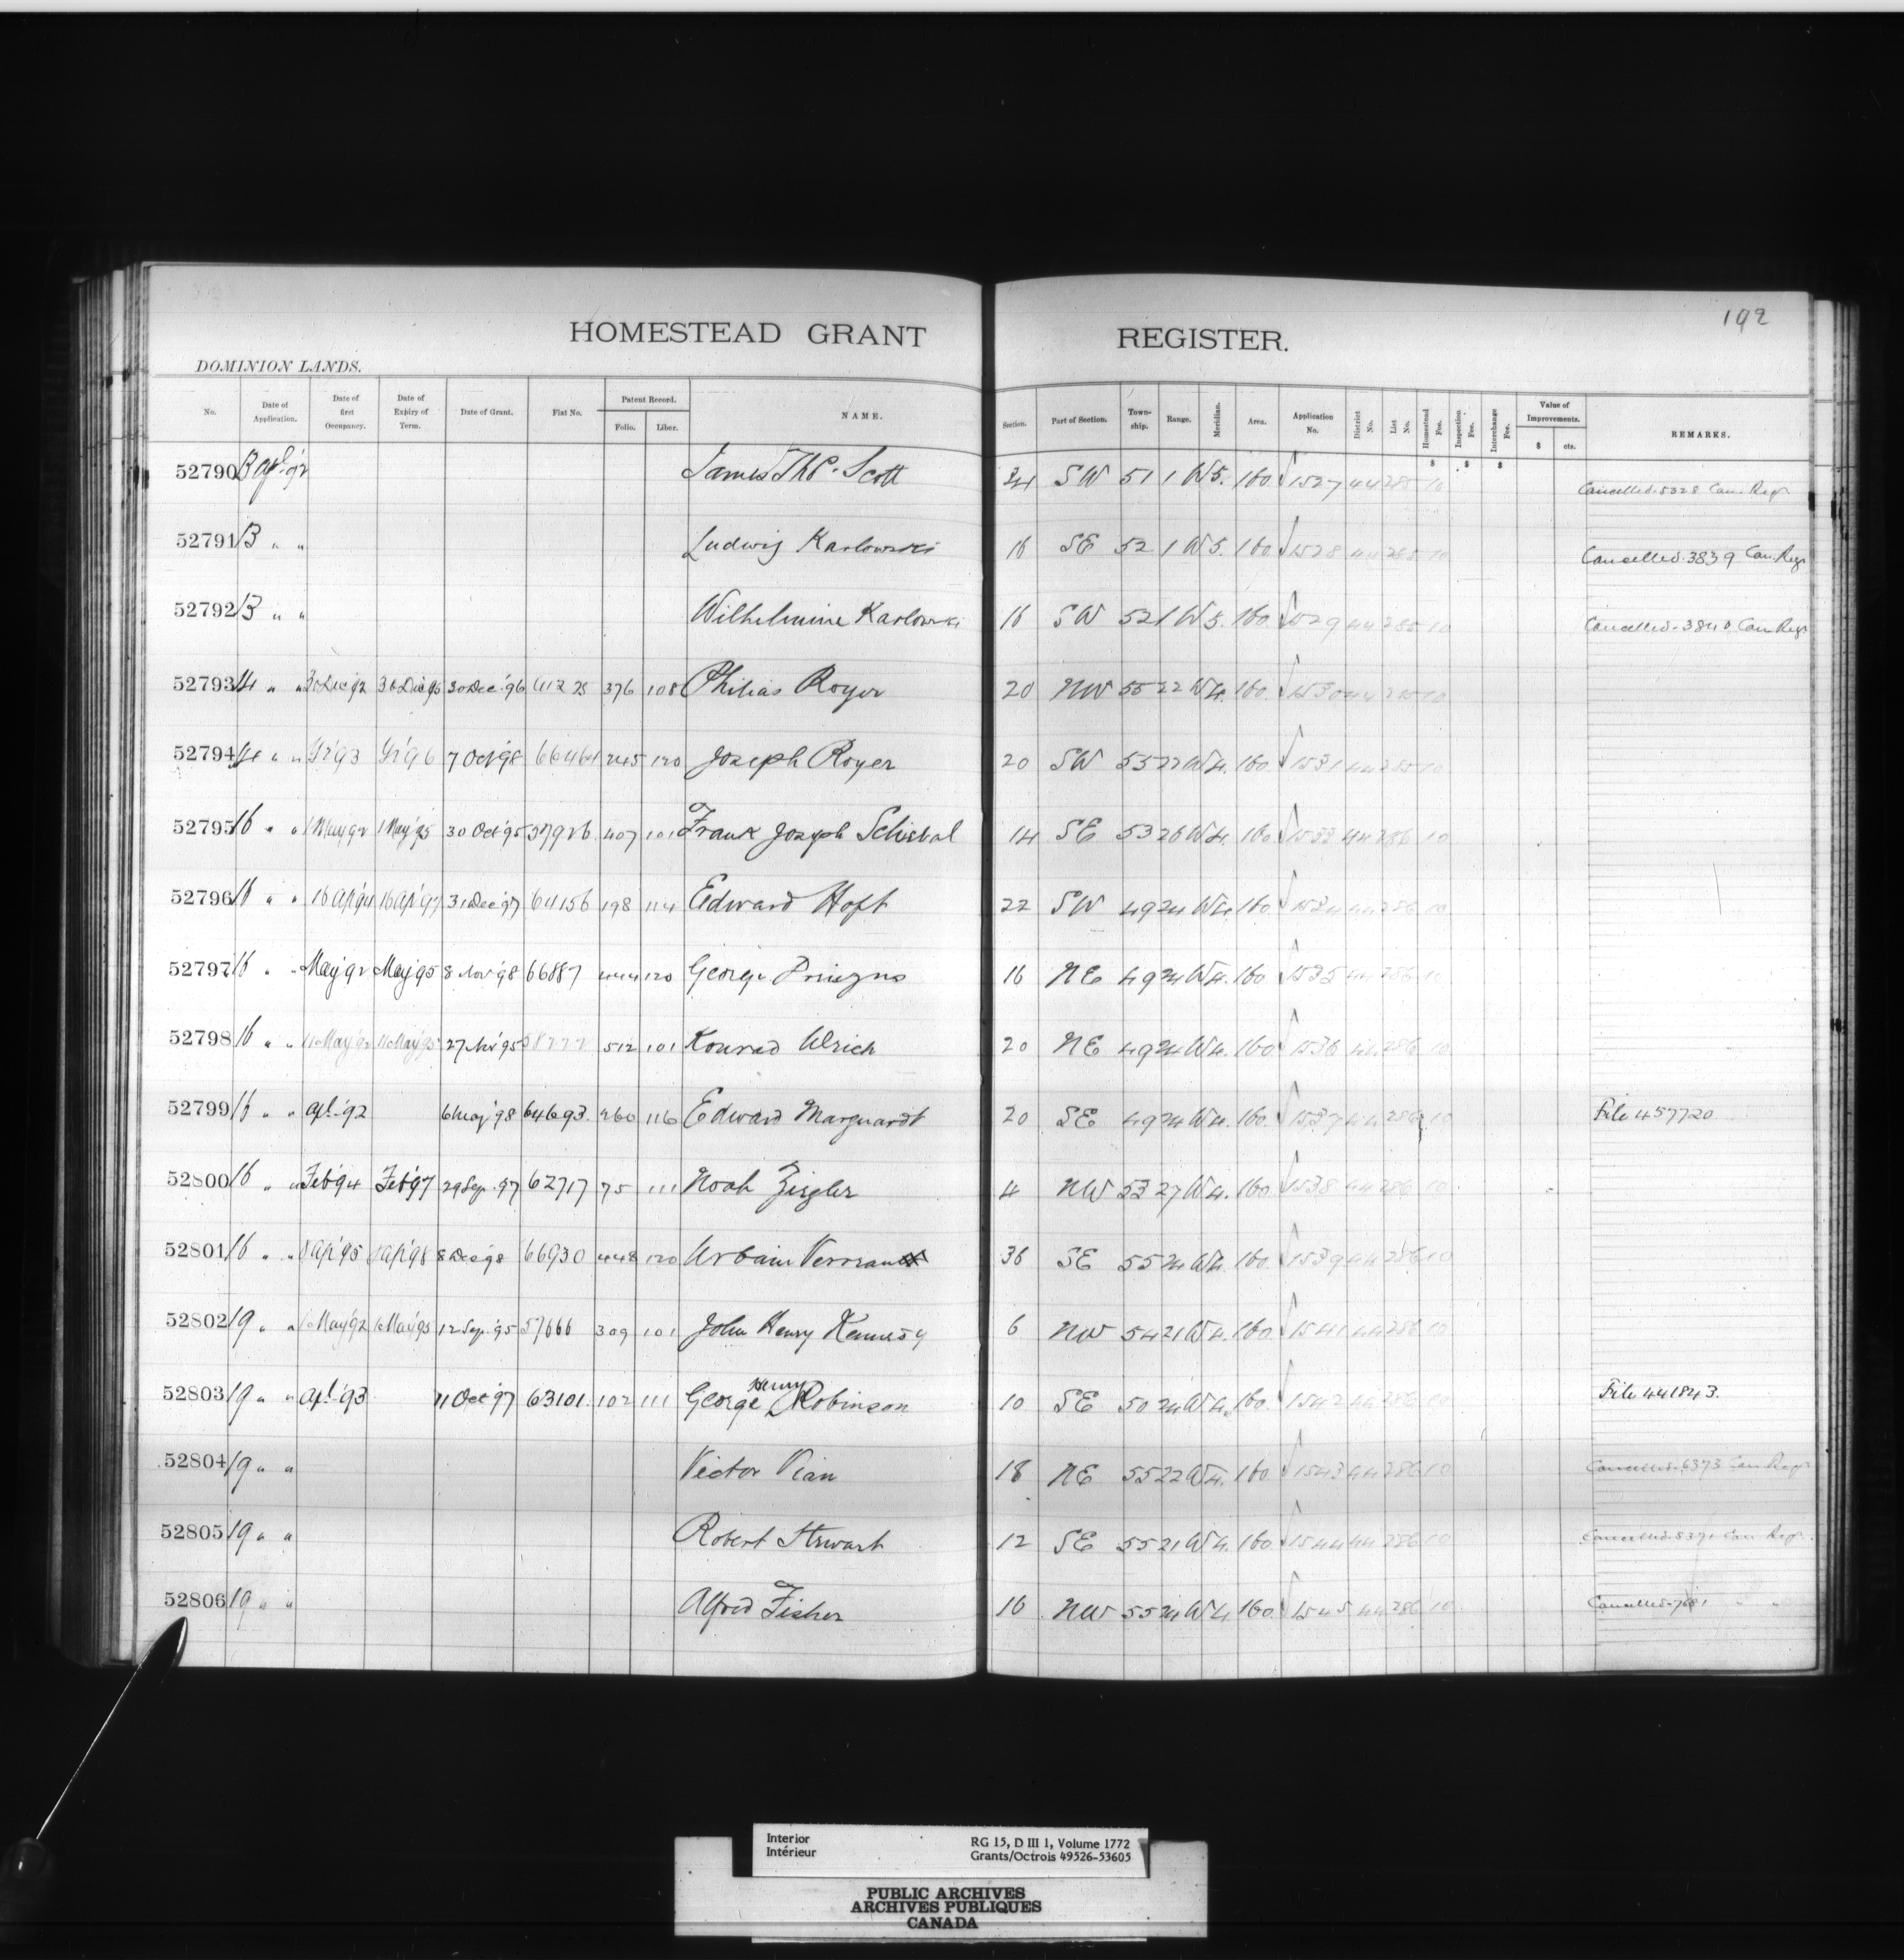 192
HOMESTEAD GRANT REGISTER.
DOMINION LANDS.
No. Date of Application. Date of first Occupancy. Date of Expiry of Term. Date of Grant. Fiat No. Patent Record. Folio. Liber. NAME. Section. Part of Section. Township. Range. Meridian. Area. Application No. District No. List No. Homestead Fee. Inspection Fee. Interchange Fee. Value of Improvements. $ cts. REMARKS.
$ $ $
52790 13 Apl. '92 James Scott 34 SW 51 1 W 5. 160. 1527 44 285 10 Cancelled. 5328 Can. Regr
52791 13 " " Ludwig Karlowski 16 SE 52 1 W 5. 160. 1528 44 285 10 Cancelled. 3839 Can. Regr
52792 13 " " Wilhelmine Karlowski 16 SW 52 1 W 5. 160. 1529 44 285 10 Cancelled. 3840 Can. Regr
52793 14 " " 30 Dec '92 30 Dec '95 30 Dec. '96 376 108 Philias Royer 20 NW 55 22 W 4. 160. 1530 44 285 10
52794 14 " " '93 '96 7 Oct '98 66464 245 120 Joseph Royer 20 SW 55 22 W 4. 160. 1531 44 285 10
52795 16 " " 1 May '92 1 May '95 30 Oct '95 57926. 407 101 Frank Joseph 14 SE 53 26 W 4. 160. 1533 44 286 10
52796 16 " " 16 Ap '94 16 Ap '97 31 Dec '97 64156 198 114 Edward Hoft 22 SW 49 24 W 4. 160. 1534 44 286 10
52797 16 " " May '92 May '95 8 Nov '98 66887 444 120 George 16 NE 49 24 W 4. 160 1535 44 286 10
52798 16 " " May '92 May '95 27 Nov '95 58222 512 101 Konrad Ulrich 20 NE 49 24 W 4. 160 1536 44 286 10
52799 16 " " Apl. '92 6 May '98 64693. 260 116 Edward Marquardt 20 SE 49 24 W 4. 160. 1537 44 286 10 File 457720
52800 16 " " Feb '94 Feb '97 29 Sep. '97 62717 75 111 Noah Ziegler 4 NW 53 27 W 4. 160. 1538 44 286 10
52801 16 " " 8 Ap '95 8 Ap '98 8 Dec '98 66930 448 120 Urbain 36 SE 55 24 W 4. 160. 1539 44 286 10
52802 19 " " May '92 May '95 12 Sep. '95 57666 309 101 John Henry Kennedy 6 NW 54 21 W 4. 160. 1541 44 286 10
52803 19 " " Apl. '93 11 Oct '97 63101. 102 111 George Henry Robinson 10 SE 50 24 W 4. 160. 1542 44 286 10 File 441843.
52804 19 " " Victor Vian 18 NE 55 22 W 4. 160. 1543 44 286 10 Cancelled. 6373 Can. Regr
52805 19 " " Robert Stewart 12 SE 55 21 W 4. 160. 1544 44 286 10 Cancelled. Can. Regr.
52806 19 " " Alfred Fisher 16 NW 55 24 W 4. 160. 1545 44 286 10 Cancelled. " "
Interior RG 15, D III 1, Volume 1772
Intérieur Grants/Octrois 49526-53605
PUBLIC ARCHIVES
ARCHIVES PUBLIQUES
CANADA